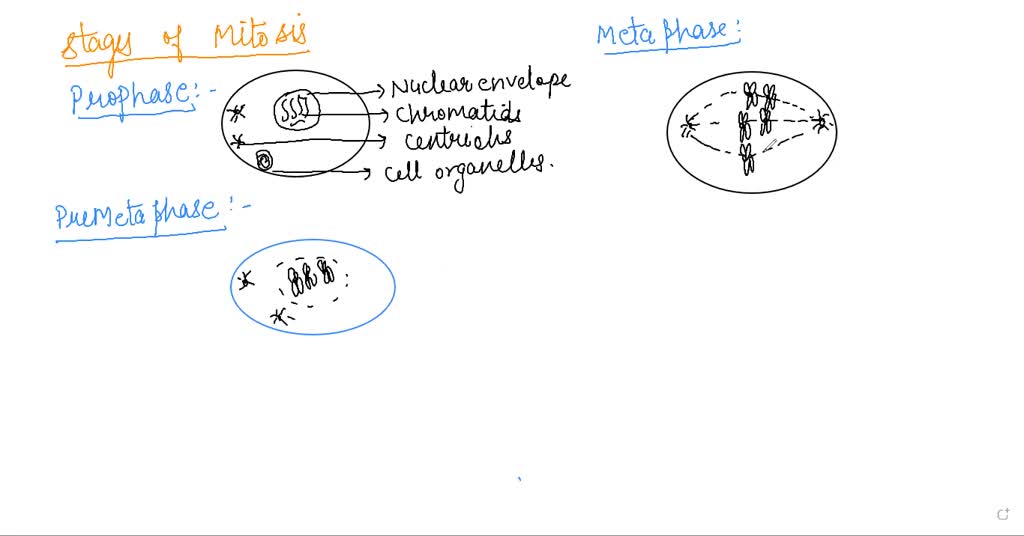 Stages of Mitosis
Prophase:-
Nuclear envelope
Chromatids
Centriols
Cell organelles.
PreMetaphase:-
Metaphase: